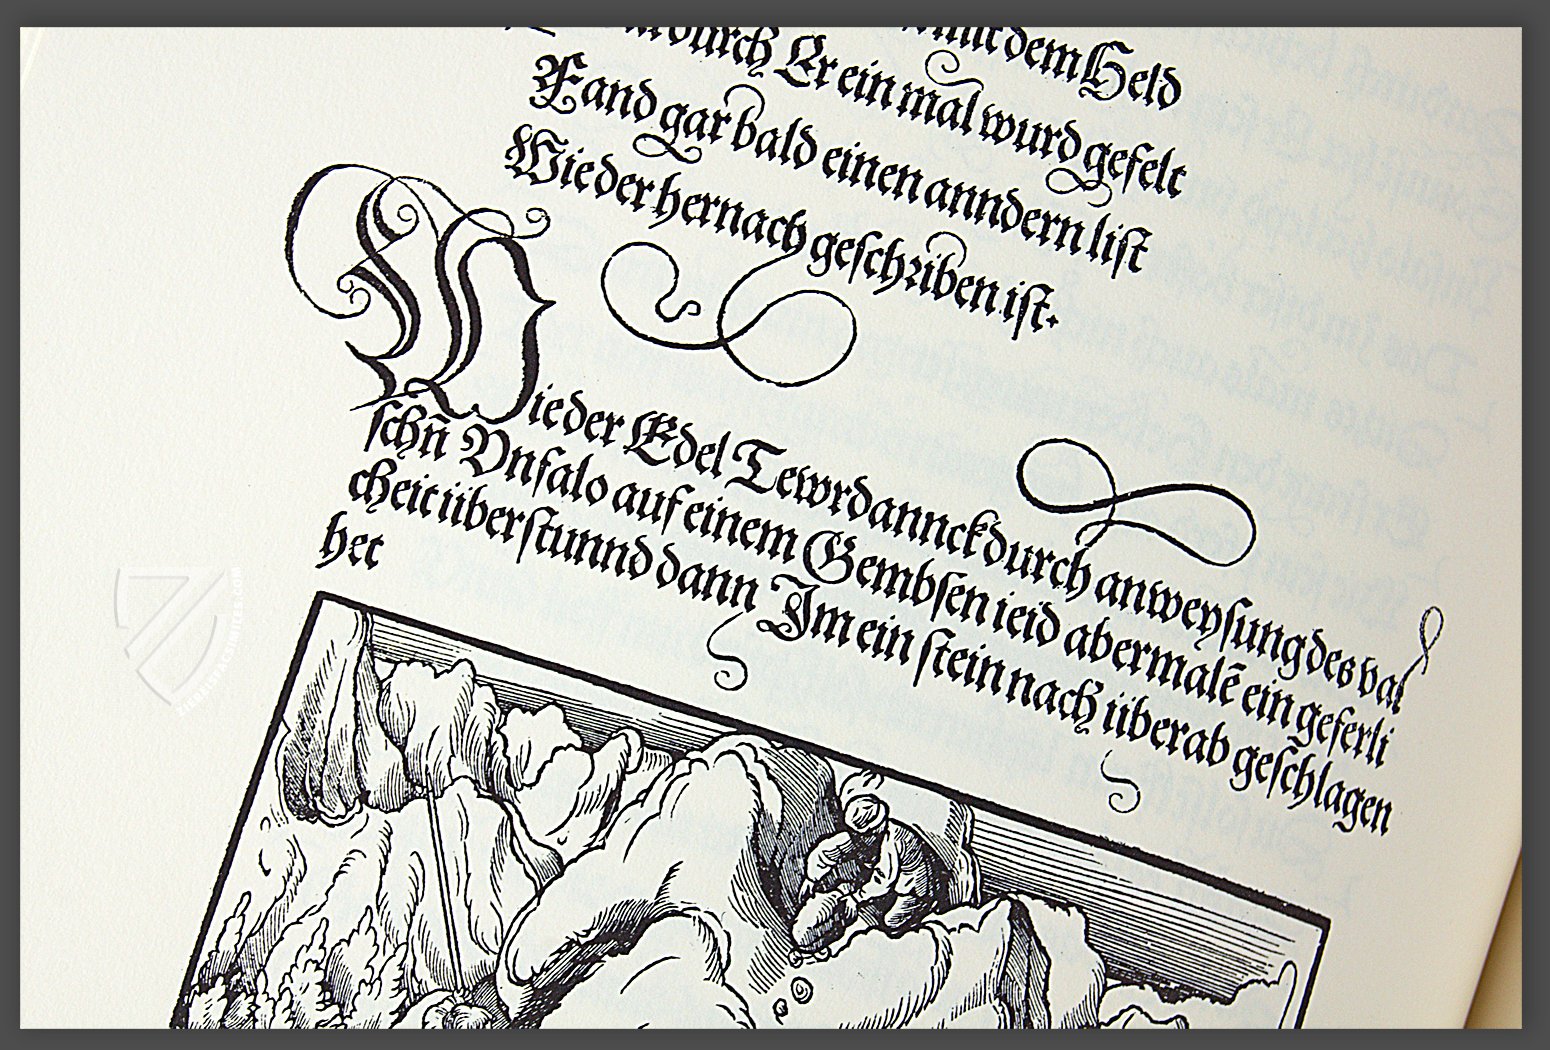 mit dem Held
durch Er ein mal wurd gefelt
Fand gar bald einen anndern list
Wie der hernach geschriben ist.
Wie der Edel Tewrdannck durch anweysung des val
schñ Vnfalo auf einem Gembsen ieid abermalẽ ein geferli
cheit überstunnd dann Im ein stein nach überab geschlagen
het